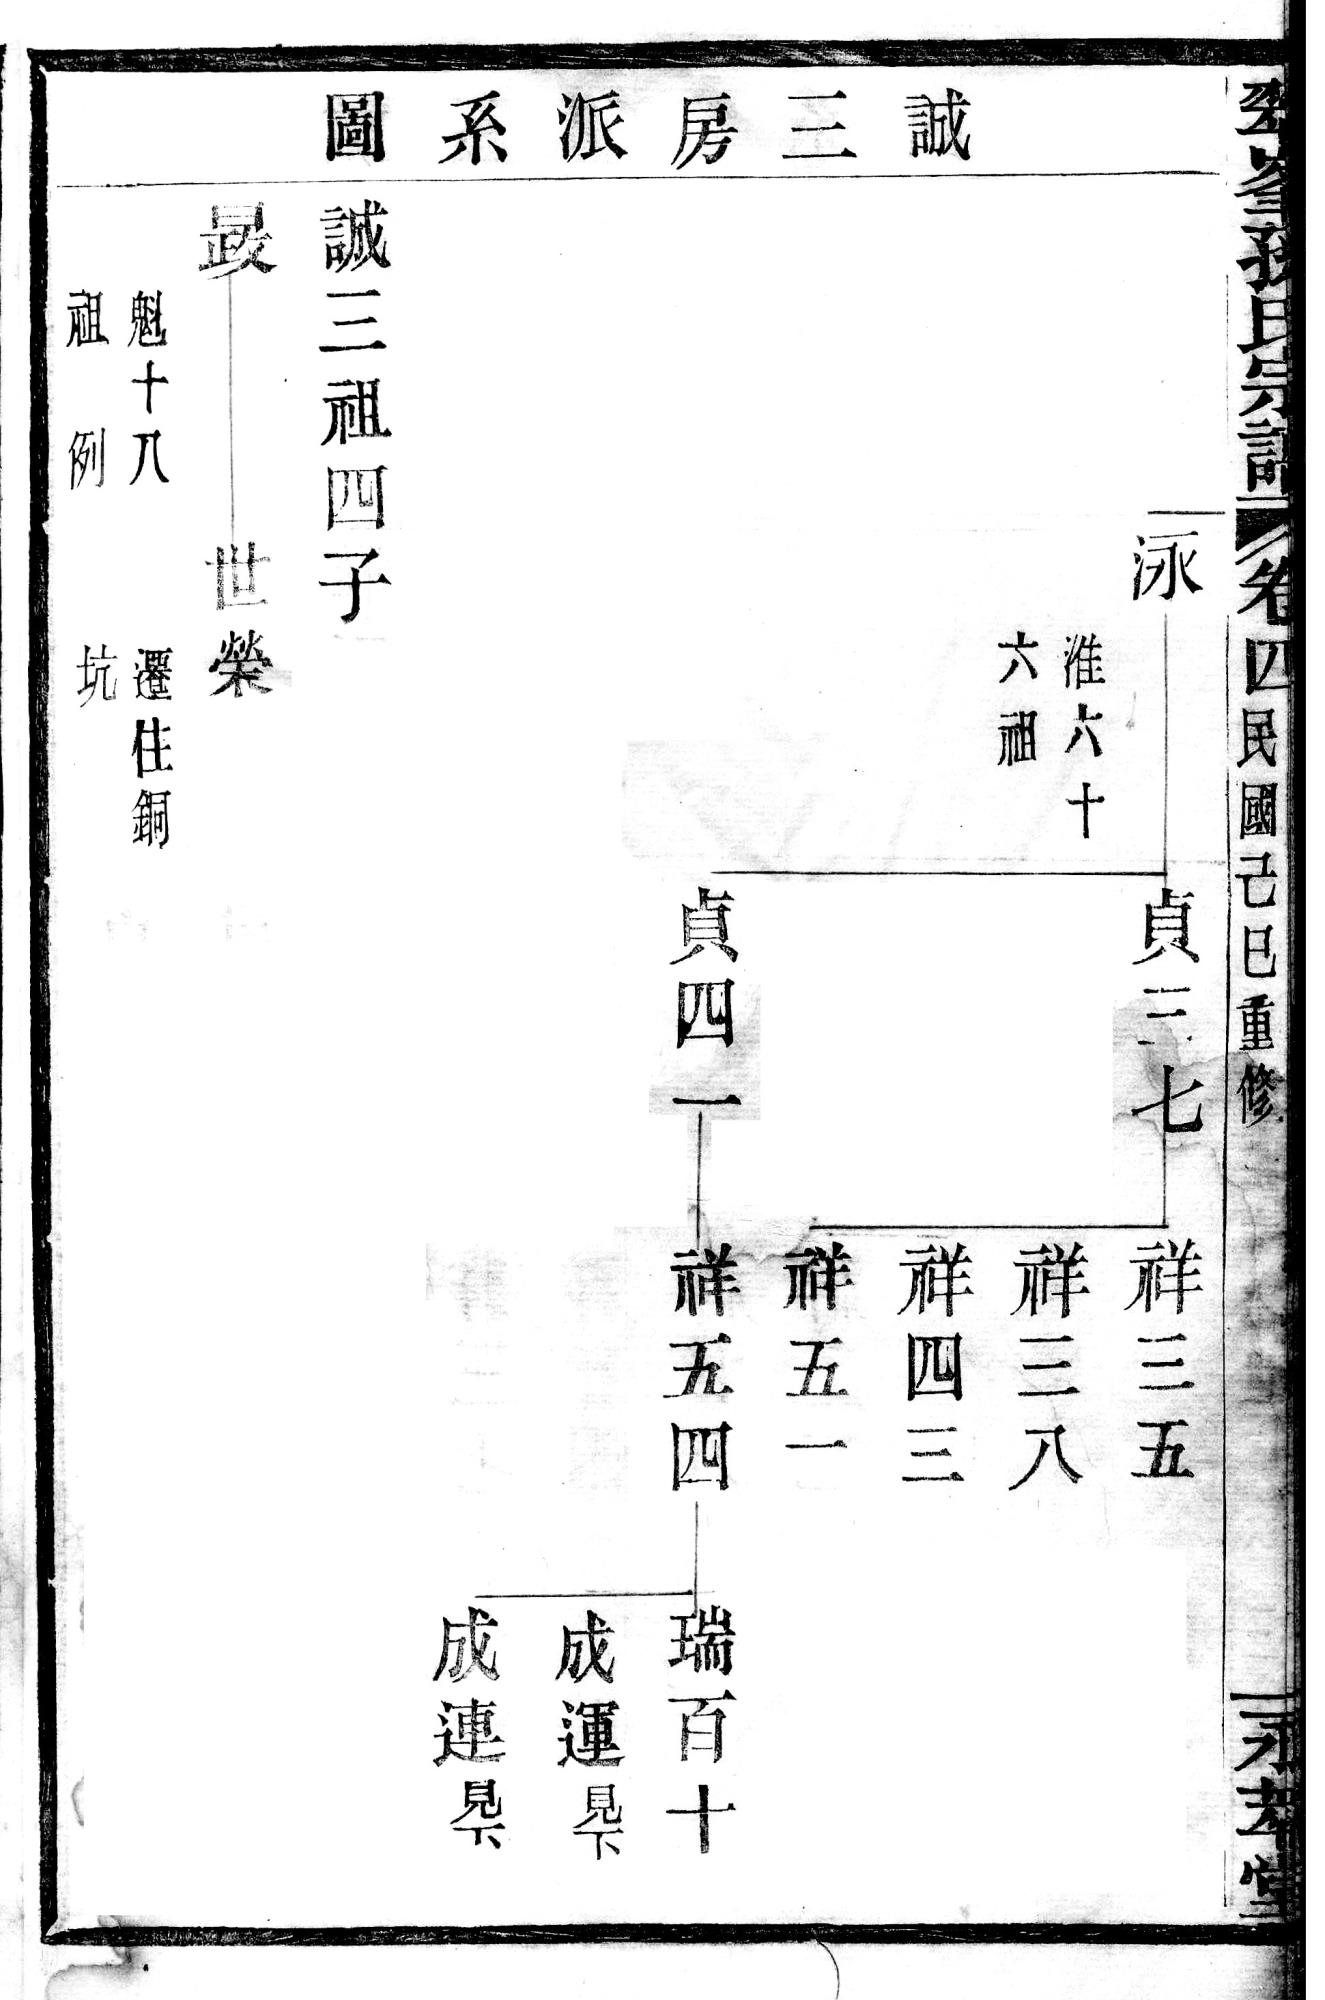 誠三房派系圖
孫氏宗譜 卷四 民國己巳重修
永孝堂
泳
淮六十
六祖
貞三七
貞四一
祥三五
祥三八
祥四三
祥五一
祥五四
瑞百十
成運見下
成連見下
誠三祖四子
晸
世榮
魁十八
祖例
遷住銅
坑